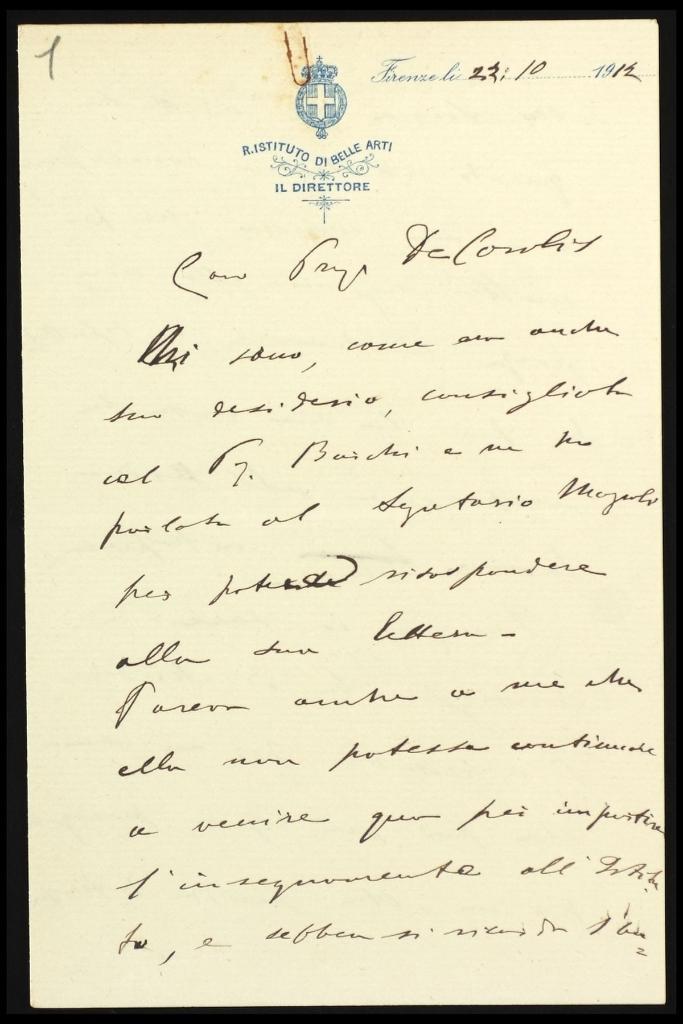 1
Firenze li 22: 10 1912
R. ISTITUTO DI BELLE ARTI
IL DIRETTORE
Caro Prof De Carolis
Mi sono, come era anche
suo desiderio, consigliato
col Pf. e ne ho
parlato al Segretario
per poter rispondere
alla sua lettera -
Pareva anche a me che
ella non potesse continuare
a venire qua per impartire
l'insegnamento all'Istitu
to, e sebben si